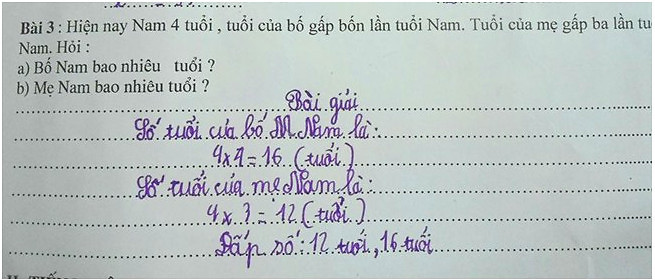 Bài 3 : Hiện nay Nam 4 tuổi , tuổi của bố gấp bốn lần tuổi Nam. Tuổi của mẹ gấp ba lần
Nam. Hỏi :
a) Bố Nam bao nhiêu tuổi ?
b) Mẹ Nam bao nhiêu tuổi ?
Bài giải
Số tuổi của bố Nam là:
4x4=16 (tuổi)
Số tuổi của mẹ Nam là:
4x3=12 (tuổi)
Đấp số: 12 tuổi, 16 tuổi